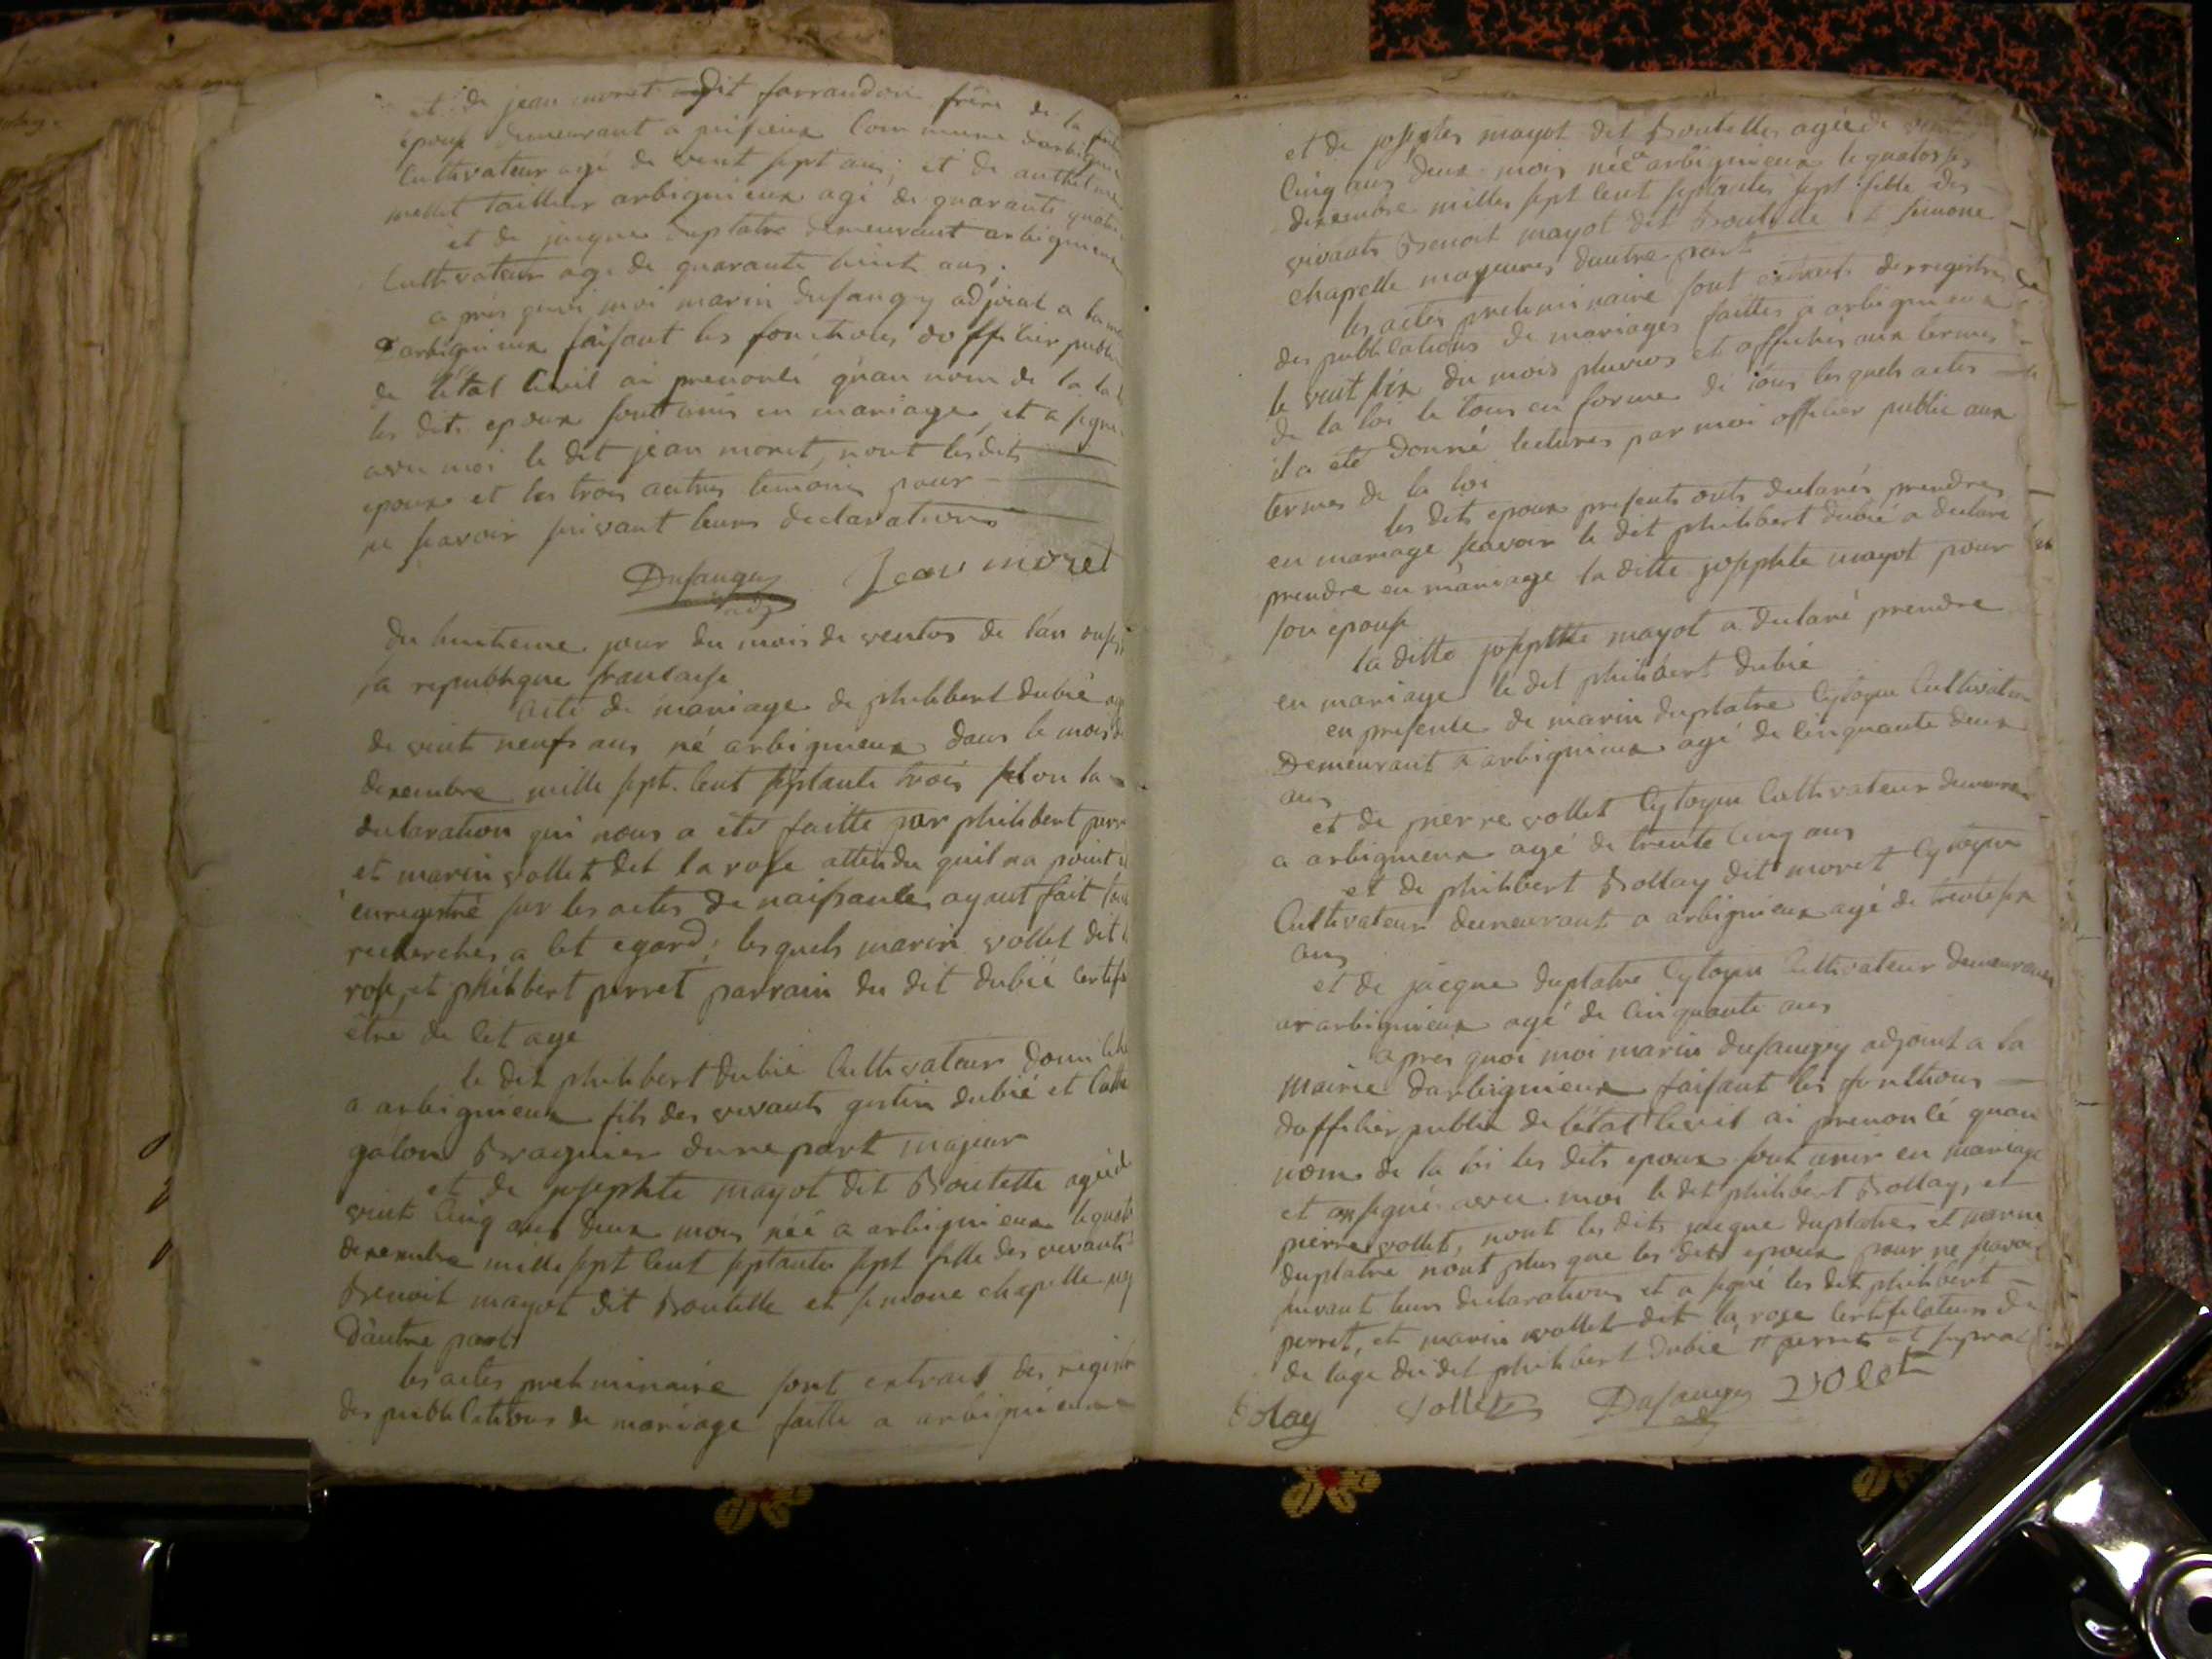 et de jean moret dit farrandon frère de la
epouse demeurant a peisieux Commune darbignieu
Cultivateur agé de vint sept ans, et de anthelme
mellet tailleur arbignieux agé de quarante quatre
et de jacque duplatre demeurant arbignieux
Cultivateur age de quarante huit ans.
apres quoi moi marin dusaugey adjoint a la
Darbignieux faisant les fonctions dofficier public
de létat Civil ai prenoncé quau nom de la
les dits epoux sont unis en mariage, et a signé
avec moi le dit jean moret, nont les dits
epoux et les trois autres temoins pour
ne scavoir suivant leurs declarations
Dusaugey Jean moret
du huitieme jour du mois de ventos de lan
la republique francaise
acte de mariage de philibert dubié
de vint neufs ans né arbignieux dans le mois de
dexembre mille sept cent septante trois selon la
declaration qui nous a été faitte par philibert perr
et marin vollet dit la rose attendu quil na point
enregistré sur les actes de naissance, ayant fait
recherches a cet egard; lesquels marin vollet dit
rose, et philibert perret parrain du dit dubié
être de cet age
le dit philibert dubié Cultivateur
a arbignieux fils des vivants dubié et
galon Braquier dune part majeur
et de josephte mayot dit Boutette agée de
vint Cinq ans deux mois née a arbignieux
dexembre mille sept cent septante sept fille des vivants
Benoit mayot dit Boutette et simone chapelle
Dautre part
les actes preliminaire sont extrait des
des publications de mariage faitte a arbignieux
et de josephtes mayot dit Boutette agée de vint
Cinq ans deux mois née a arbignieux le quatorse
dexembre milles sept cent septantes sept fille des
vivants Benoit mayot dit Boutette et simone
chapelle mayeures dautre part
les actes preliminaire sont extrait des registres
des publications de mariages faittes a arbignieux
le vint six du mois pluvios et affichés aux termes
de la loi le tous en forme de tous lesquels actes
il a été donné lectures par moi officier public aux
termes de la loi
les dits epoux presents onts declarés prendres
en mariage scavoir le dit philibert dubié a declaré
prendre en mariage la ditte josephte mayot pour
son epouse
la ditte josephte mayot a declaré prendre
en mariage le dit philibert dubié
en presence de marin duplatre Cytoyen Cultivateur
Demeurant a arbignieux agé de Cinquante deux
ans
et de pierre vollet Cytoyen Cultivateur
a arbignieux agé de trente Cinq ans
et de philibert Bollay dit moret Cytoyen
Cultivateur demeurant a arbignieux agé de trente six
ans
et de jacque duplatre Cytoyen Cultivateur demeurant
ararbignieux agé de Cinquante ans
apres quoi moi marin dusaugey adjoint a la
Mairie darbignieux faisant les fonctions
dofficier public de létat Civil ai prenoncé quau
nom de la loi les dits epoux sont unir en mariage
et on signé avec moi le dit philibert Bollay, et
pierre vollet, nont les dits jacque duplatre, et marin
duplatre nont plus que les dits epoux pour ne scavoir
suivant leurs declarations et a signé les dit philibert
perret, et marin vollet dit la rose Certificateurs de
de lage du dit philibert dubié
Bolay Vollet Dusaugey volet